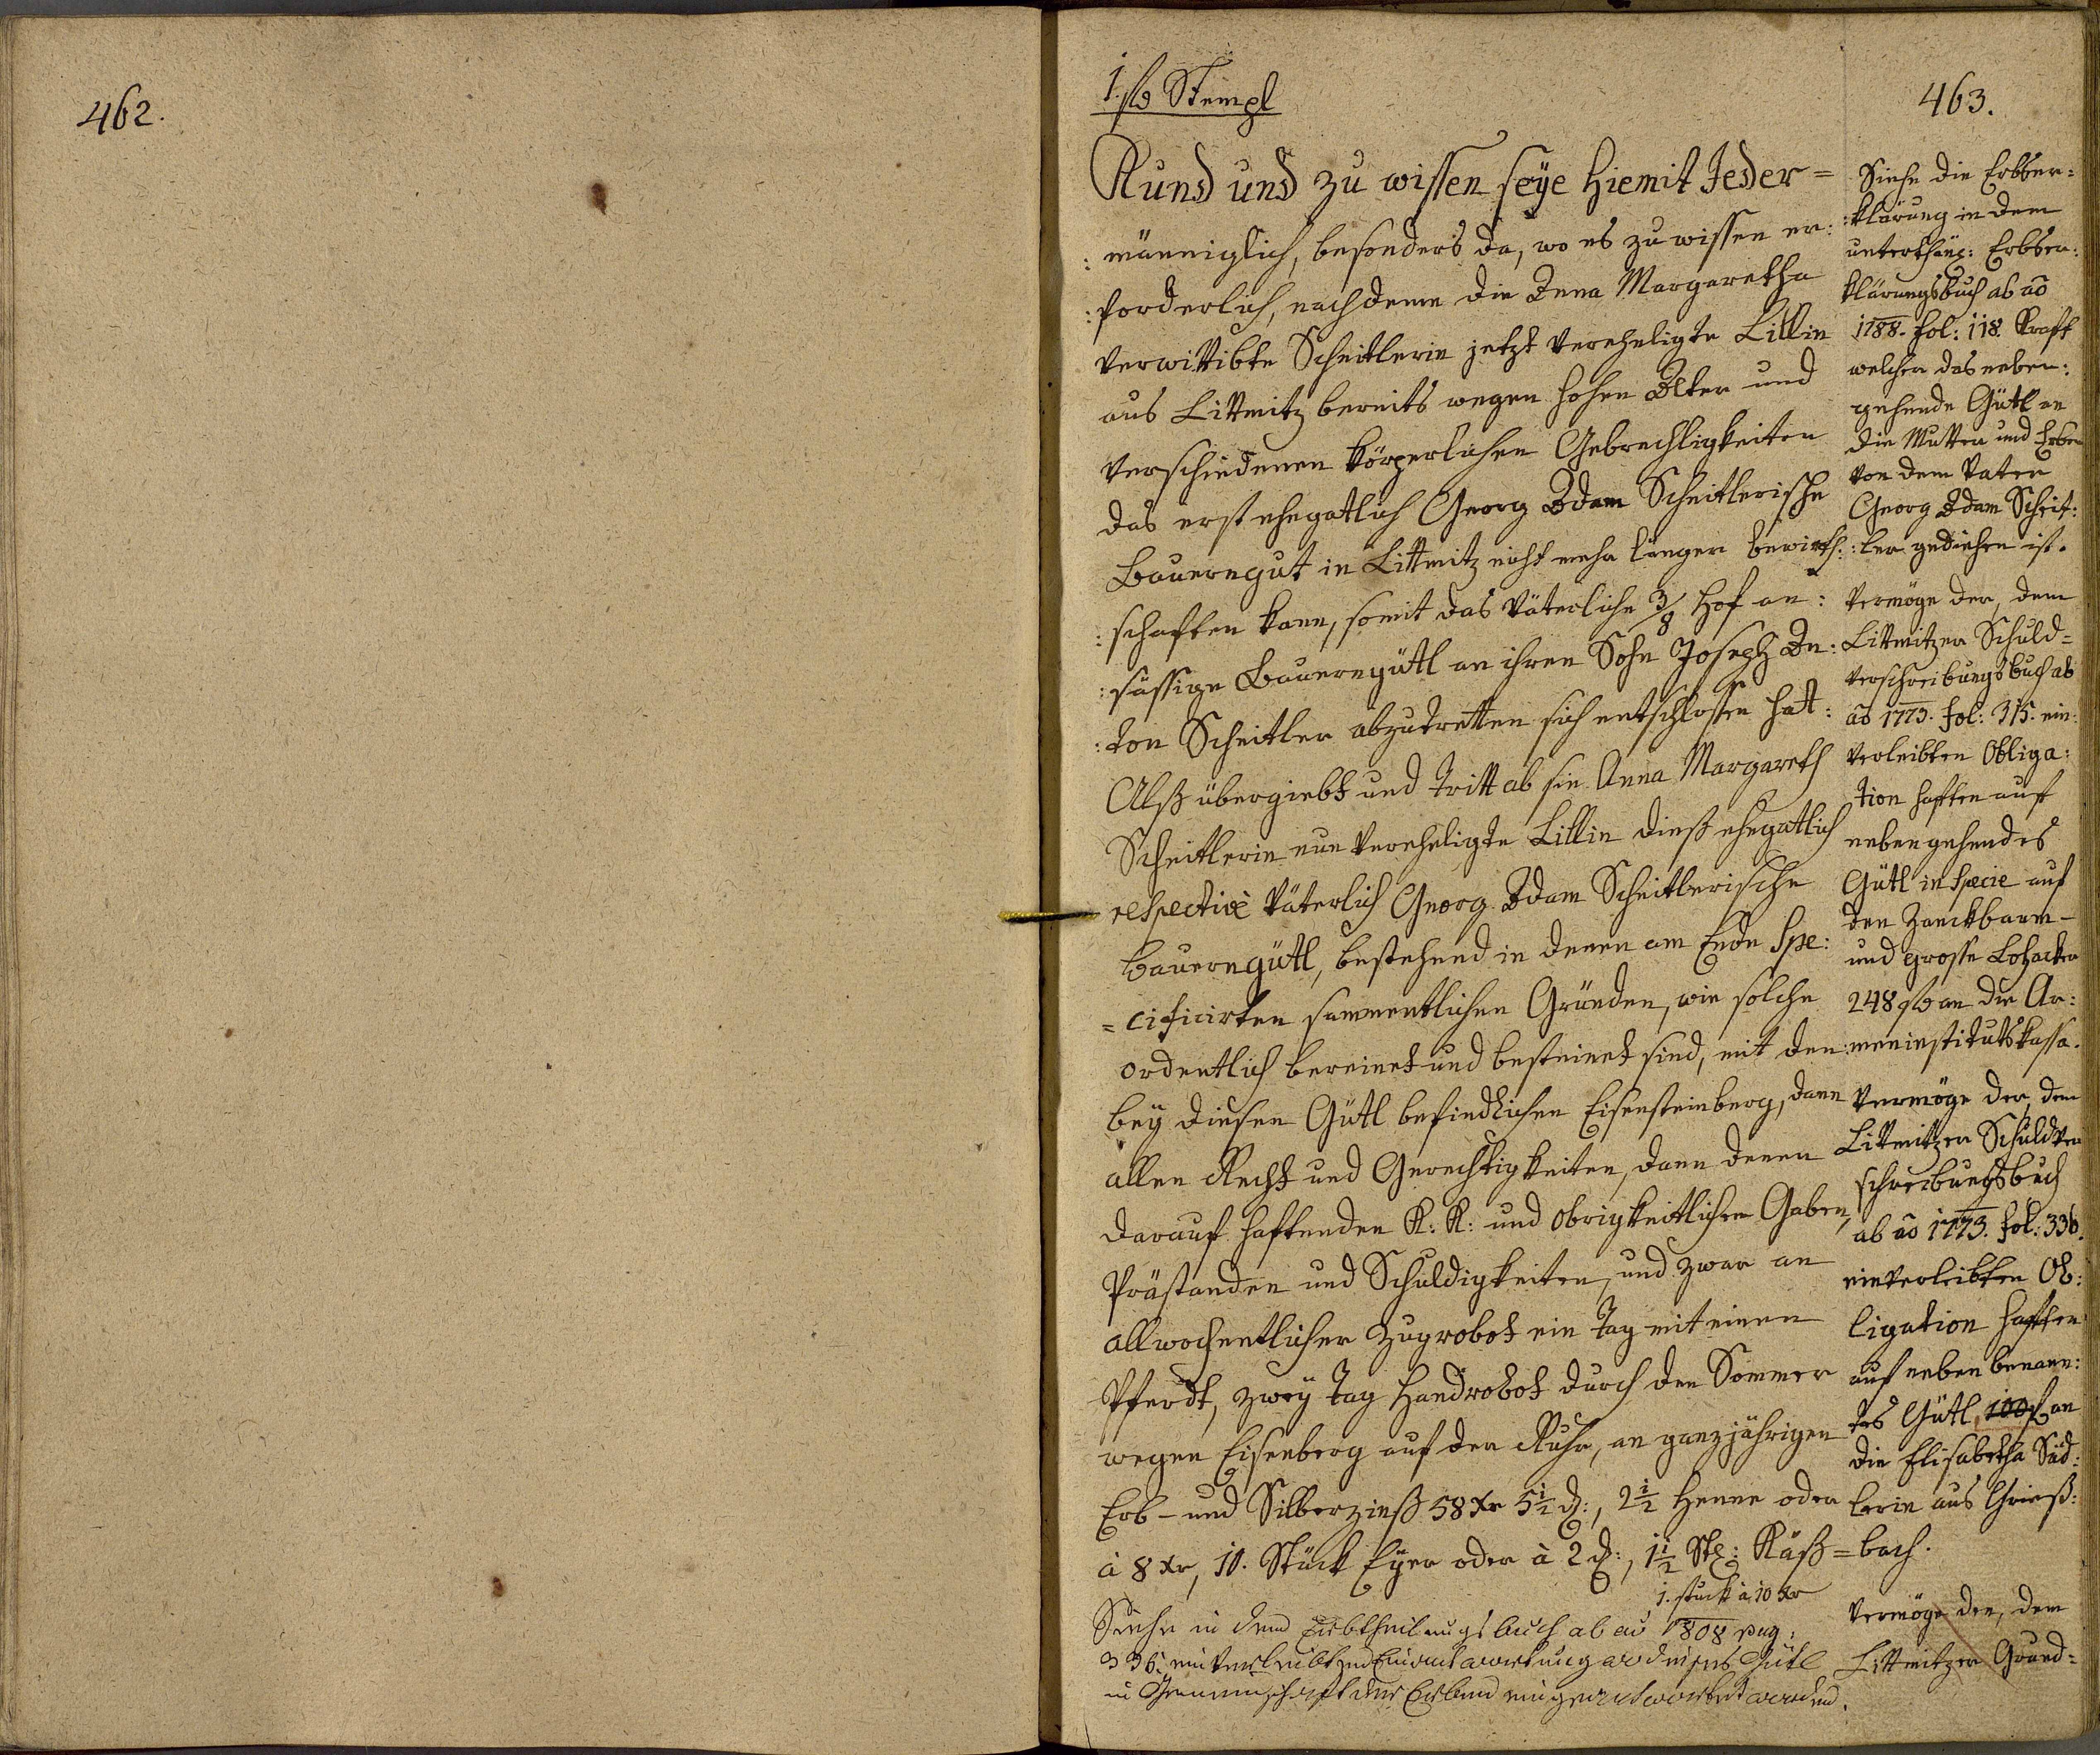 462.
1. fl Stempl
463.
Kund und zu wissen seye hiemit Jeder=
:männiglich, besonders da, wo es zu wissen er:
:forderlich, nachdeme die Anna Margaretha
verwittibte Scheitlerin jetzt verehligte Lillin
aus Littmitz bereits wegen hohen Alter und
verschiedenen körperlichen Gebrechligkeiten
das erst ehegatlich Georg Adam Scheitlerische
Bauerngut in Littmitz nicht mehr länger bewirth:
:schaften kann, somit das väterliche 3/8 Hof an:
:sässige Bauerngütl an ihren Sohn Joseph An:
:ton Scheitler abzutretten sich entschlossen hat:
Alß übergiebt und tritt ab sie Anna Margareth
Scheitlerin nun verehligte Lillin dieß ehegatlich
respective väterlich Georg Adam Scheitlerische
Bauerngütl, bestehend in denen am Ende spe:
=cificirten sammentlichen Gründen, wie solche
ordentlich bereinet und besteinet sind, mit den
bey diesen Gütl befindlichen Eisensteinberg, dann
allen Recht und Gerechtigkeiten, dann denen
darauf haftenden K: K: und obrigkeitlichen Gaben,
Prästanden und Schuldigkeiten, und zwar an
allwochentlicher Zugrobot ein Tag mit einen
Pferdt, zwey Tag Handrobot durch den Sommer
wegen Eisenberg auf der Ruhr, an ganzjährigen
Erb- und Silberzinß 58 Xr 5 1/2 d:, 2 1/2 Henne oder
à 8 Xr, 10. Stück Eyer oder à 2 d:, 1 1/2 Stl: Käß=
1. stuck à 10 Xr
Siehe in dem Erbtheilungsbuch ab ao 1808 pag:
336. einverleibten Einantwortung ist dieses Gütl
in Gemeinschaft der Erben eingeantwortet worden.
Siehe die Erbser:
:klärung in dem
unterthäng: Erbser:
klärungsbuch ab ao
1788. fol: 118. Kraft
welcher das neben:
gehende Gütl an
die Mutter und Erben
von dem Vater
Georg Adam Scheit:
:ler gediehen ist.
Vermöge der, dem
Littmitzer Schuld=
verschreibungsbuch ab
ao 1773. fol: 315. ein:
verleibten Obliga:
tion haften auf
nebengehendes
Gütl in specie auf
den Zanckbaum-
und grosse Lohacker
248 fl an die Ar:
:meninstitutskassa.
Vermöge der, dem
Littmitzer Schuldver
schreibungsbuch
ab ao 1773. fol: 336.
einverleibten Ob:
ligation haften
auf neben benann:
tes Gütl 100 f an
die Elisabetha Süd:
lerin aus Grieß:
bach.
Vermöge der, dem
Littmitzer Grund=